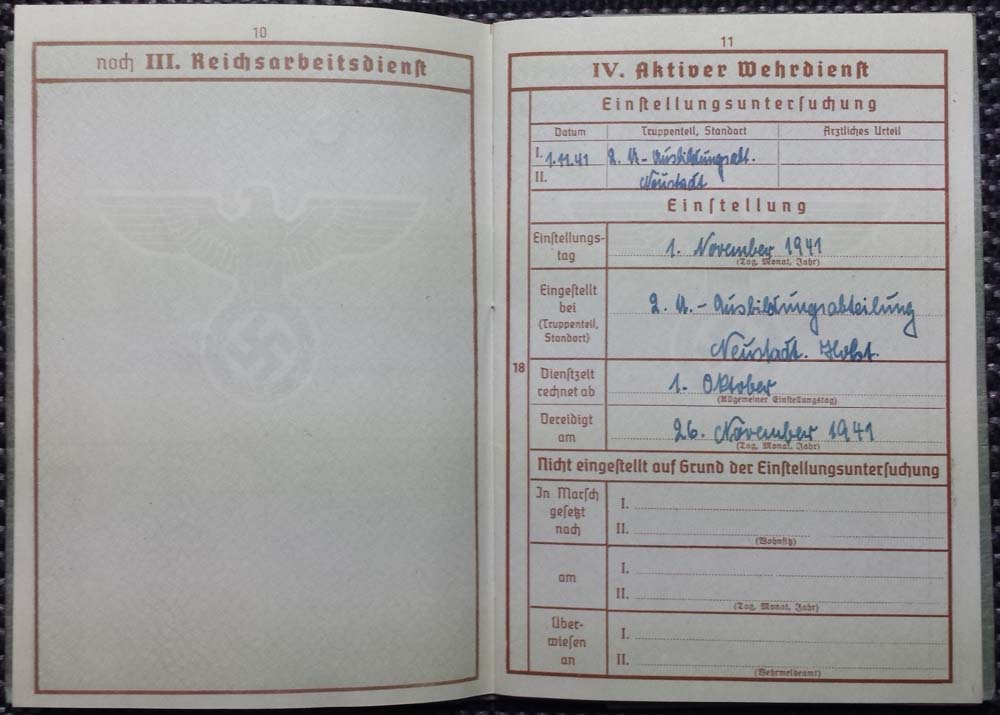 10
noch III. Reichsarbeitsdienst
11
IV. Aktiver Wehrdienst
Einstellungsuntersuchung
Datum Truppenteil, Standort Ärztliches Urteil
I. 1.11.41 2. U.-Ausbildungsabt.
II. Neustadt
Einstellung
Einstellungs-
tag
1. November 1941
(Tag, Monat, Jahr)
Eingestellt
bei
(Truppenteil,
Standort)
2. U.-Ausbildungsabteilung
Neustadt. Holst.
18
Dienstzeit
rechnet ab
1. Oktober
(Allgemeiner Einstellungstag)
Vereidigt
am
26. November 1941
(Tag, Monat, Jahr)
Nicht eingestellt auf Grund der Einstellungsuntersuchung
In Marsch
gesetzt
nach
I.
II.
(Wohnsitz)
am
I.
II.
(Tag, Monat, Jahr)
Über-
wiesen
an
I.
II.
(Wehrmeldeamt)